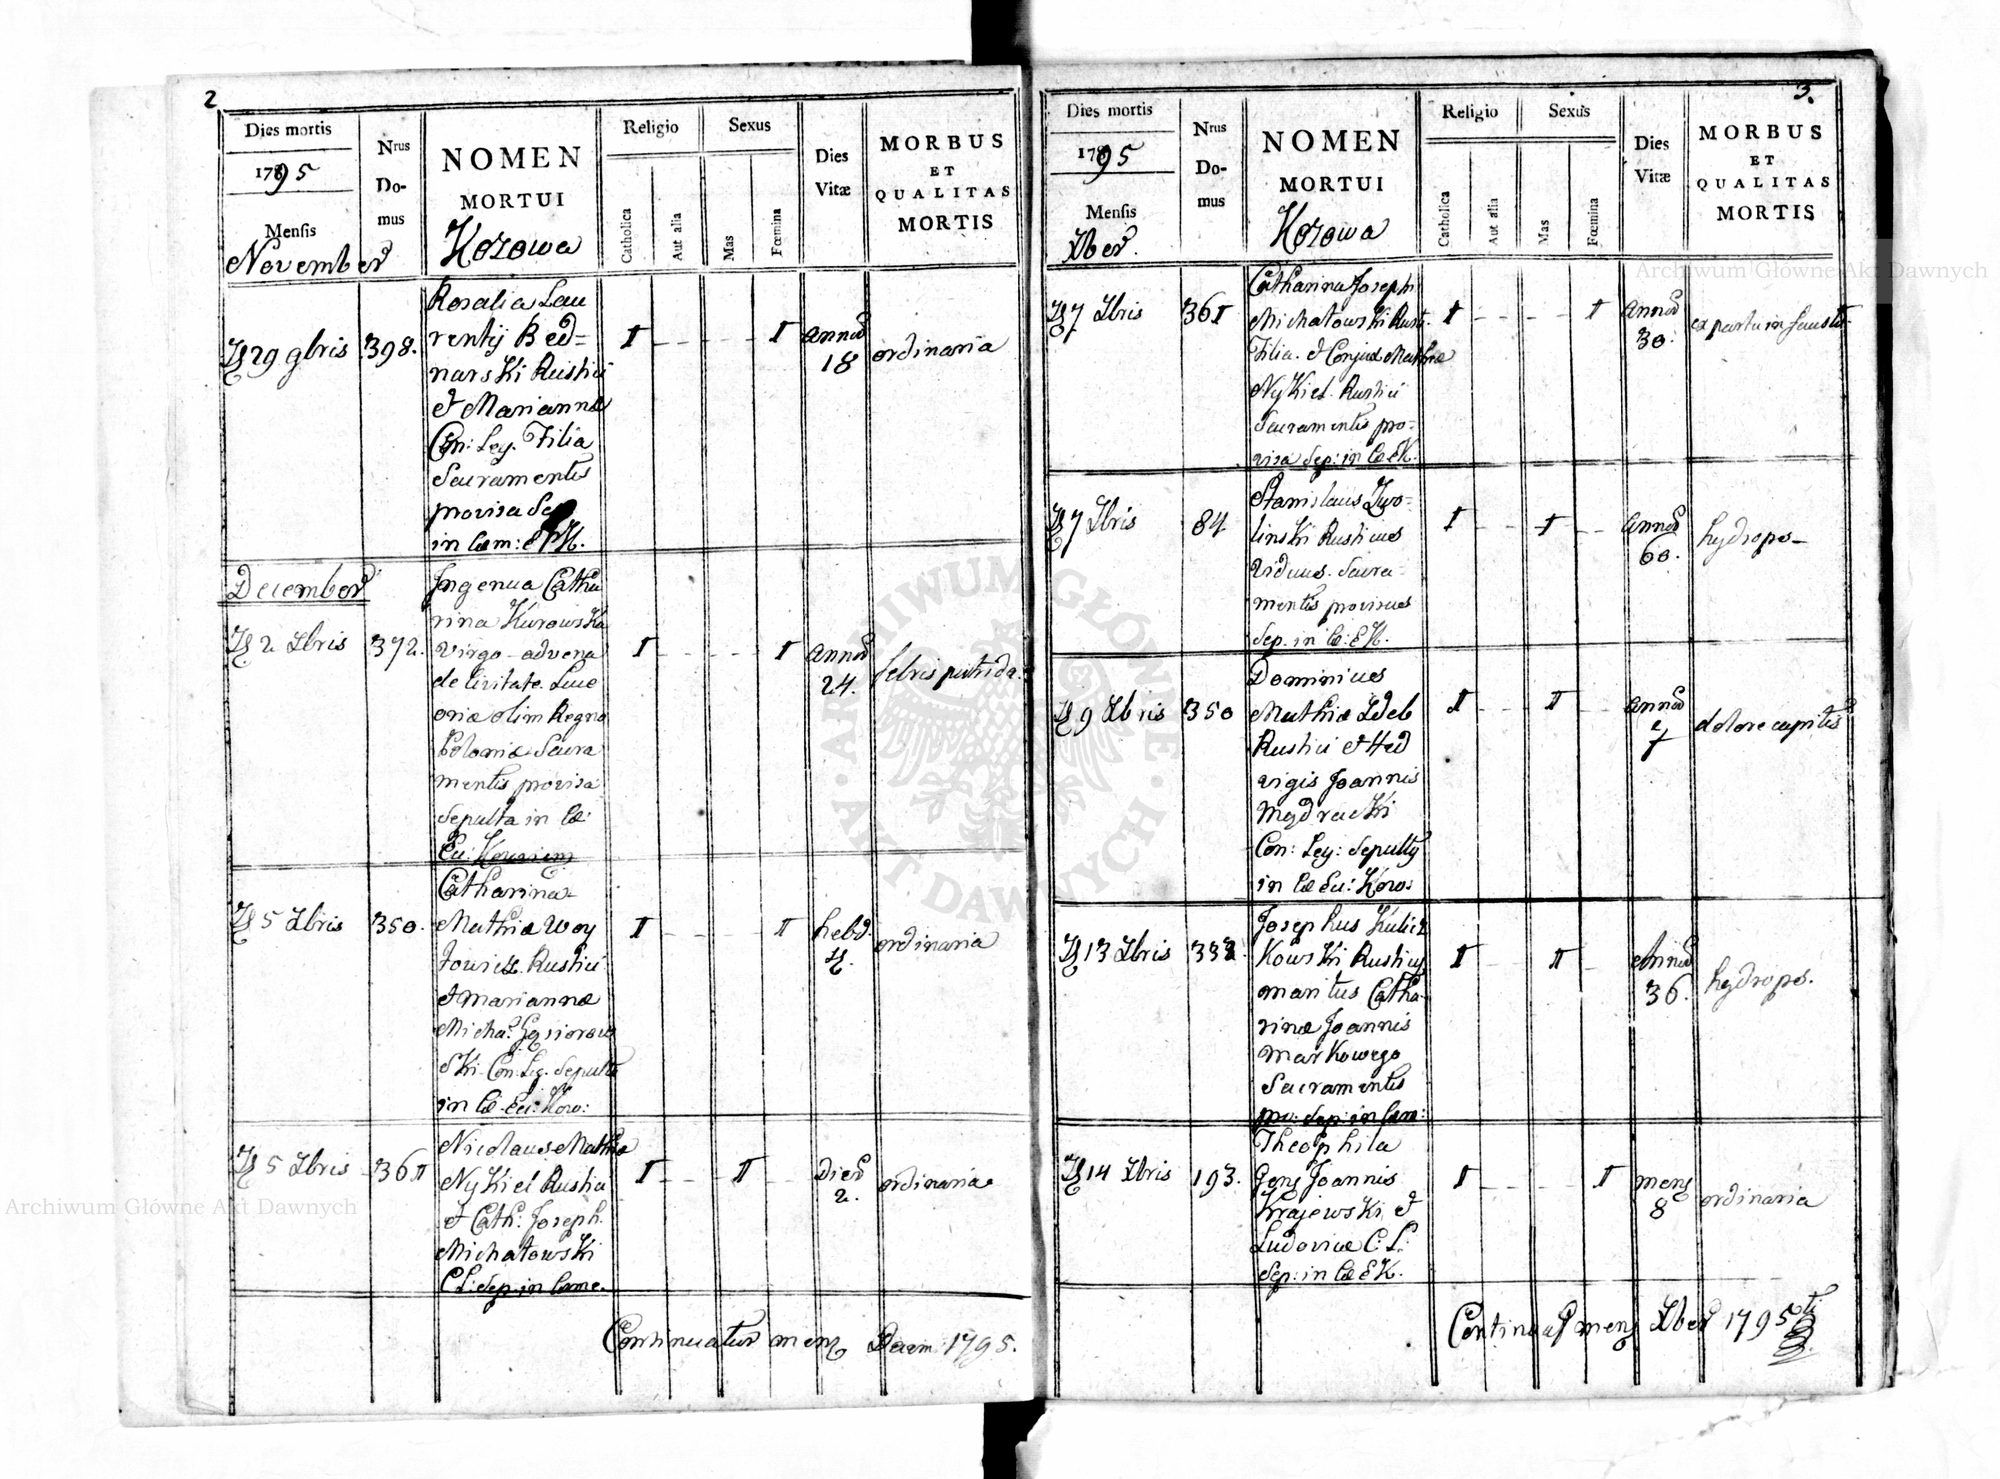 2
Dies mortis
1795
Mensis
November
Nrus
Do-
mus
NOMEN
MORTUI
Kozowa
Religio
Catholica
Aut alia
Sexus
Mas
Fœmina
Dies
Vitæ
MORBUS
ET
QUALITAS
MORTIS
29 9bris
398.
Rosalia Lau
rentij Bed=
narski Rustici
et Mariannæ
Con: Leg. Filia
Sacramentis
provisa Sep
in Cœm: E K.
I
I
Annor
18
ordinaria
December
2 Xbris
372.
Ingenua Catha
rina Kurowska
virgo advena
de Civitate
olim Regno
Poloniæ Sacra
mentis provisa
Sepulta in Cœ:
Ec:
I
I
Annor
24.
febris putrida.
5 Xbris
350.
Catharina
Mathiæ Woy
towicz Rustici
et Mariannæ
Micha: Gąsiorow
ski Con: Leg. Sepulta
in Cœ Ec: Kow:
I
I
hebd.
ordinaria
5 Xbris
361
Nicolaus Mathiæ
Nykiel Rustici
et Cath: Joseph.
Michałowski
C L: Sep: in Cœme.
I
I
Dier
2.
ordinaria
Continuatur mens Decem 1795.
3.
Dies mortis
1795
Mensis
Xber.
Nrus
Do-
mus
NOMEN
MORTUI
Kozowa
Religio
Catholica
Aut alia
Sexus
Mas
Fœmina
Dies
Vitæ
MORBUS
ET
QUALITAS
MORTIS
7 Xbris
361
Catharina Joseph
Michałowski Rusti.
Filia. et Conjux Mathiæ
Nykiel Rustici
Sacramentis pro-
visa Sep: in Cœ E K.
I
I
Annor
30.
ex partu infausto
7 Xbris
84
Stanislaus Zwo-
linski Rusticus
viduus. Sacra-
mentis provisus
Sep. in Cœ: E K.
I
I
Annor
60.
hydrops
9 Xbris
350
Dominicus
Mathiæ
Rustici et Hed
vigis Joannis
Mędracki
Con: Leg: Sepultus
in Cœ Ec: Kow:
I
I
Annor
dolore capitis
13 Xbris
Josephus Kulicz
kowski Rusticus
maritus Catha-
rinæ Joannis
Markowego
Sacramentis
pro: Sep: in Cœm:
I
I
Annor
36.
hydrops.
14 Xbris
193.
Theophila
Gens Joannis
Krajewski et
Ludovicæ C: L:
Sep: in Cœ E K.
I
I
mens
8
ordinaria
Continuat mens Xber 1795
ARCHIWUM GŁÓWNE AKT DAWNYCH
Archiwum Główne Akt Dawnych
Archiwum Główne Akt Dawnych